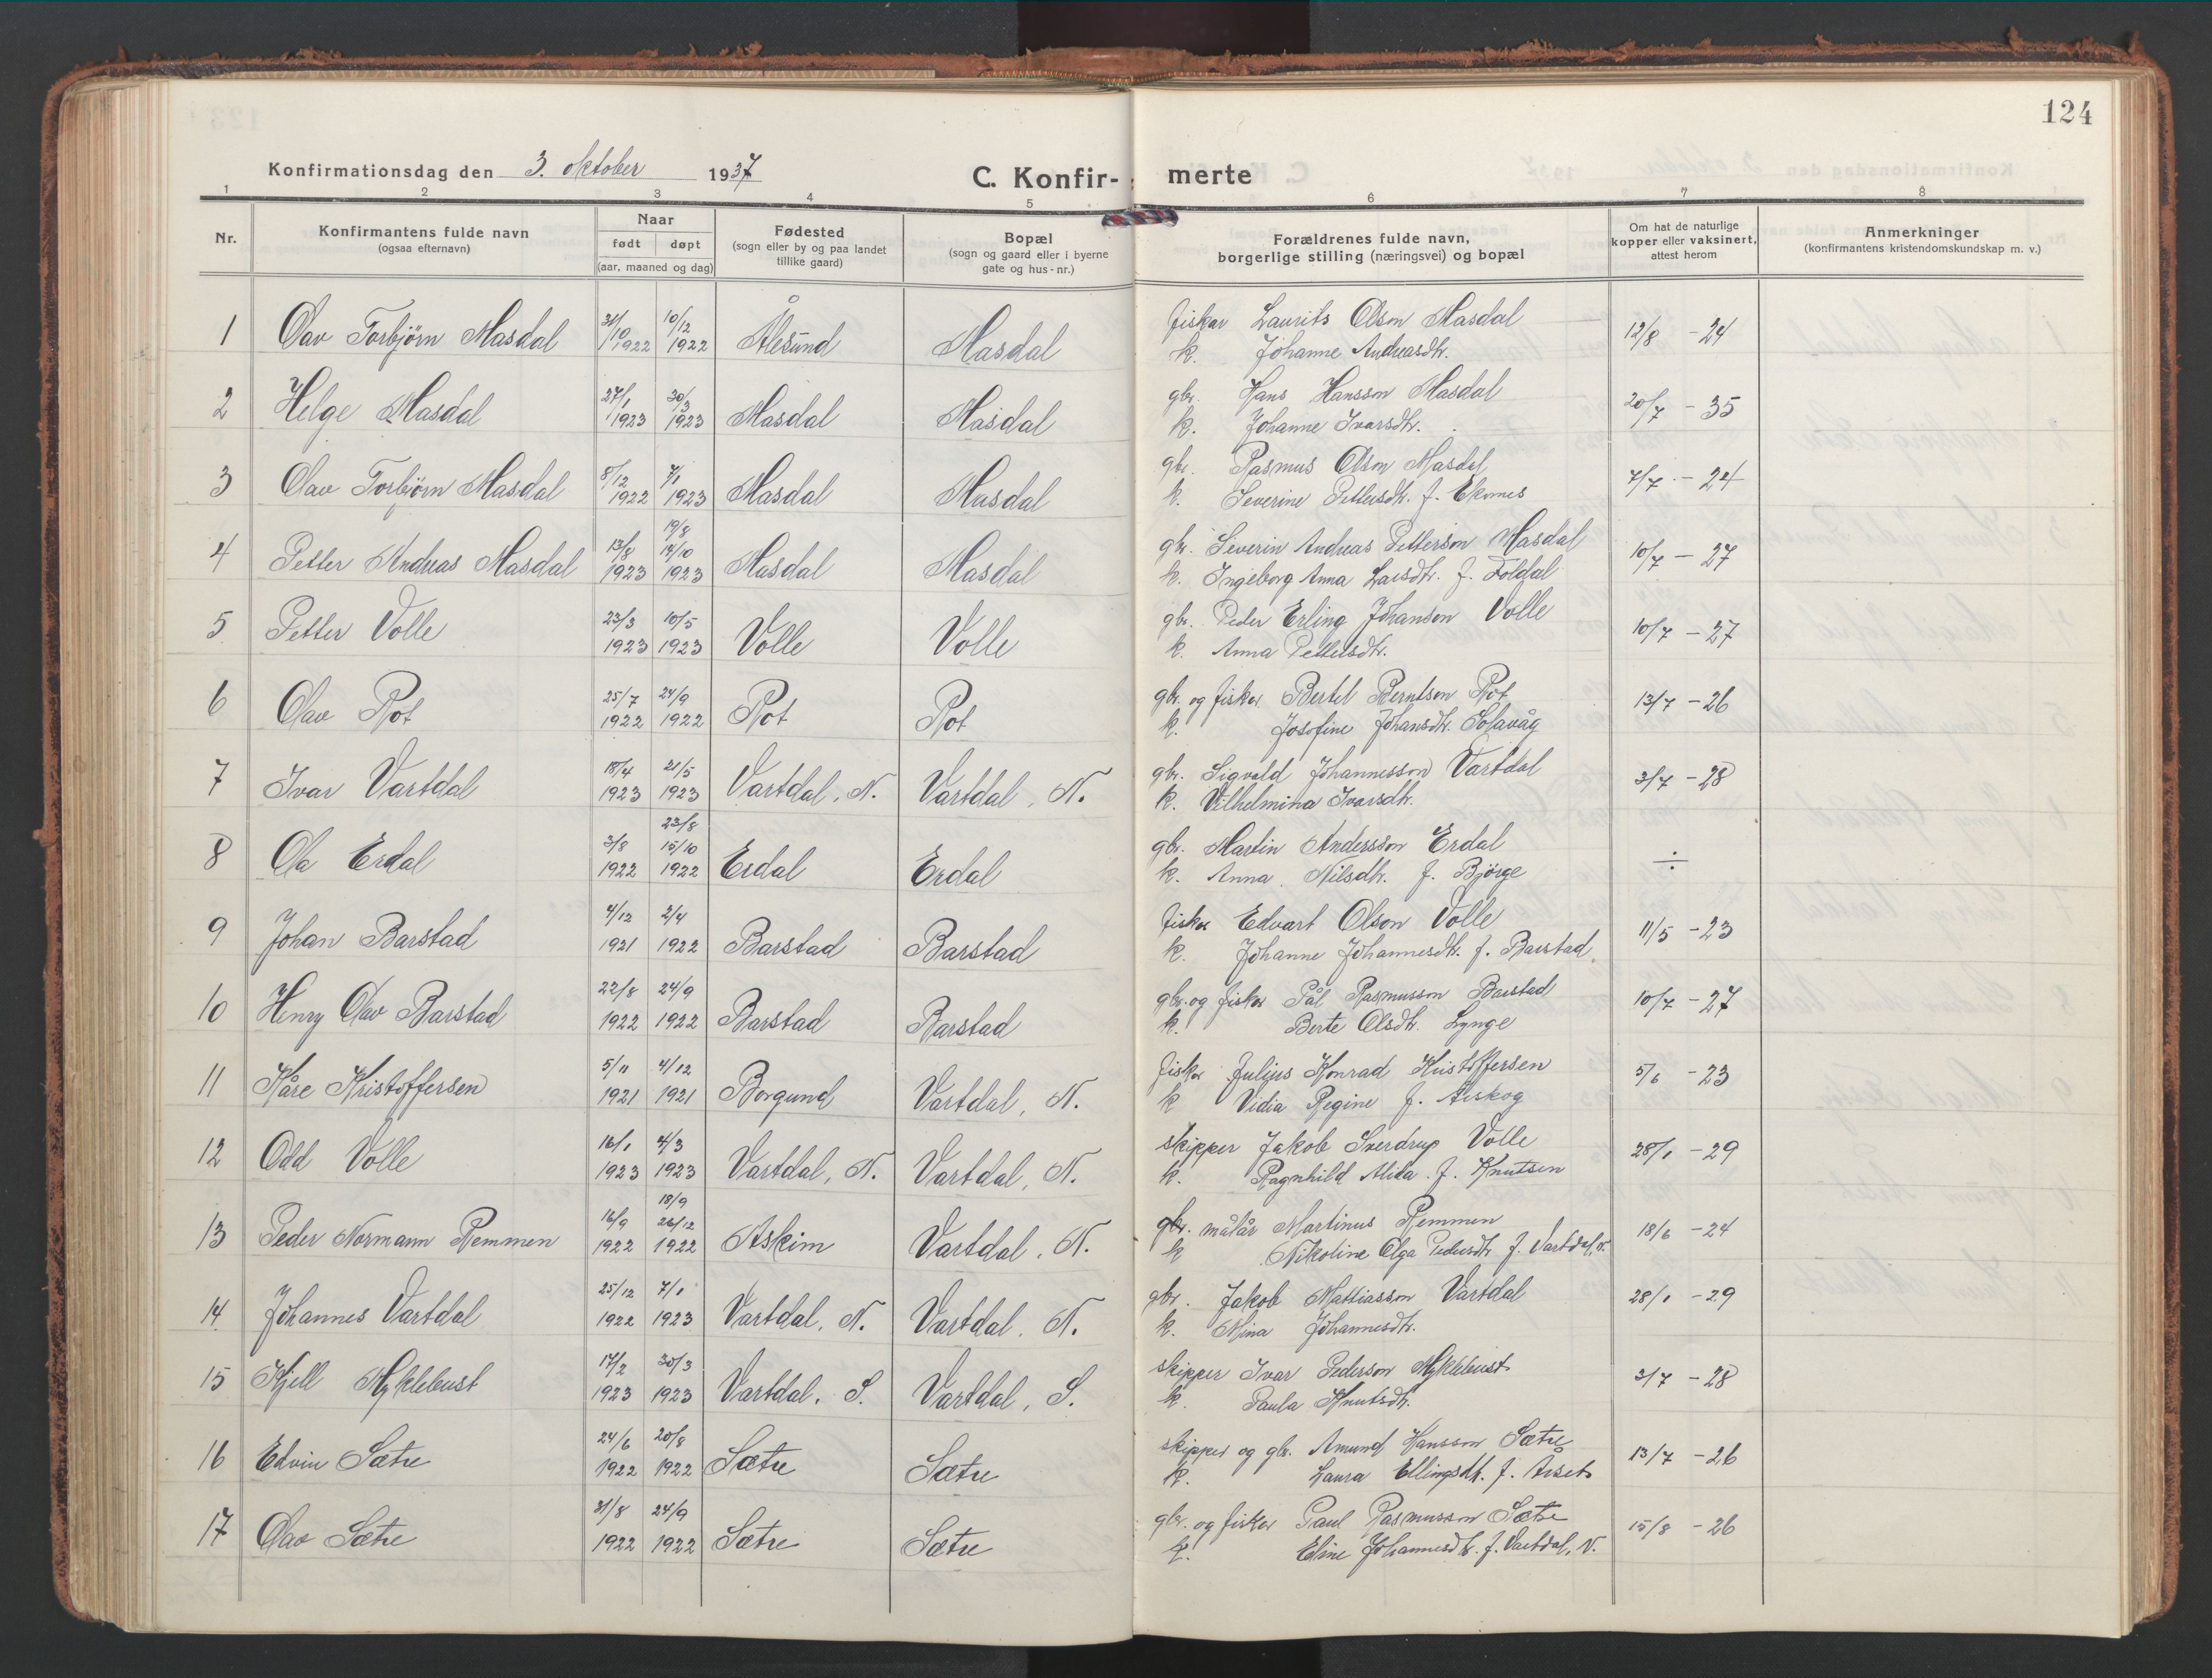 124
Konfirmationsdag den 3. oktober 1937
C. Konfir- merte
1 2 3 4 5 6 7 8
Nr.
Konfirmantens fulde navn
(ogsaa efternavn)
Naar
født døpt
(aar, maaned og dag)
Fødested
(sogn eller by og paa landet
tillike gaard)
Bopæl
(sogn og gaard eller i byerne
gate og hus-nr.)
Forældrenes fulde navn,
borgerlige stilling (næringsvei) og bopæl
Om hat de naturlige
kopper eller vaksinert,
attest herom
Anmerkninger
(konfirmantens kristendomskundskap m. v.)
1 Olav Torbjörn Masdal 31/10 1922 10/12 1922 Ålesund Masdal fiskar Laurits Olson Masdal 12/8 - 24
k. Johanne Andreasdtr.
2 Helge Masdal 27/1 1923 30/3 1923 Masdal Masdal gbr. Hans Hansson Masdal 20/7 - 35
k. Johanne Ivarsdtr.
3 Olav Torbjörn Masdal 8/12 1922 7/1 1923 Masdal Masdal gbr. Rasmus Olson Masdal 7/7 - 24
k. Severine Pettersdtr. f. Ekornes
4 Petter Andreas Masdal 13/8 1923 19/8 14/10 1923 Masdal Masdal gbr. Severin Andreas Petterson Masdal 10/7 - 27
k. Ingeborg Anna Larsdtr. f. Foldal
5 Petter Volle 23/3 1923 10/5 1923 Volle Volle gbr. Peder Erling Johanson Volle 10/7 - 27
k. Anna Pettersdtr.
6 Olav Rot 25/7 1922 24/9 1922 Rot Rot gbr. og fiskar Bertel Berntson Rot 13/7 - 26
k. Josefine Johansdtr. Solavåg
7 Ivar Vartdal 18/4 1923 21/5 1923 Vartdal, N. Vartdal, N. gbr. Sigvald Johannesson Vartdal 3/7 - 28
k. Vilhelmina Ivarsdtr.
8 Ola Erdal 3/8 1922 23/8 15/10 1922 Erdal Erdal gbr. Martin Andersson Erdal ÷
k. Anna Nilsdtr. f. Bjørge
9 Johan Barstad 4/12 1921 2/4 1922 Barstad Barstad fiskar Edvart Olson Volle 11/5 - 23
k. Johanne Johannesdtr. f. Barstad.
10 Henry Olav Barstad 22/8 1922 24/9 1922 Barstad Barstad gbr. og fiskar Pål Rasmusson Barstad 10/7 - 27
k. Berte Olsdtr. Lynge
11 Kåre Kristoffersen 5/11 1921 4/12 1921 Borgund Vartdal, N. fiskar Julius Konrad Kristoffersen 5/6 - 23
k Vidia Regine f. Årskog
12 Odd Volle 16/1 1923 4/3 1923 Vartdal, N. Vartdal, N. skipper Jakob Sverdrup Volle 28/1 - 29
k. Ragnhild Alida f. Knutsen
13 Peder Normann Remmen 16/9 1922 18/9 26/12 1922 Askim Vartdal, N. gbr. målar Martinus Remmen 18/6 - 24
k Nikoline Olga Pedersdtr f. Vartdal, N.
14 Johannes Vartdal 25/12 1922 7/1 1923 Vartdal, N. Vartdal, N. gbr. Jakob Mattiasson Vartdal 28/1 - 29
k. Mina Johannesdtr.
15 Kjell Myklebust 17/2 1923 30/3 1923 Vartdal, S. Vartdal, S. skipper Ivar Pederson Myklebust 3/7 - 28
k. Paula Knutsdtr.
16 Edvin Sætre 24/6 1922 20/8 1922 Sætre Sætre skipper og gbr. Amund Hansson Sætre 13/7 - 26
k. Laura Ellingsdtr. f. Årset
17 Olav Sætre 31/8 1922 24/9 1922 Sætre Sætre gbr. og fiskar Paul Rasmusson Sætre 15/8 - 26
k. Eline Johannesdtr. f. Vartdal, N.